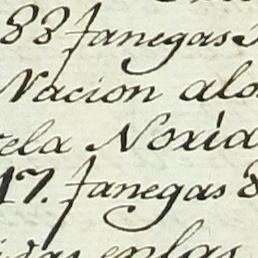 88 fanegas
Nacion alo
ela Noria
17. fanegas
enlas